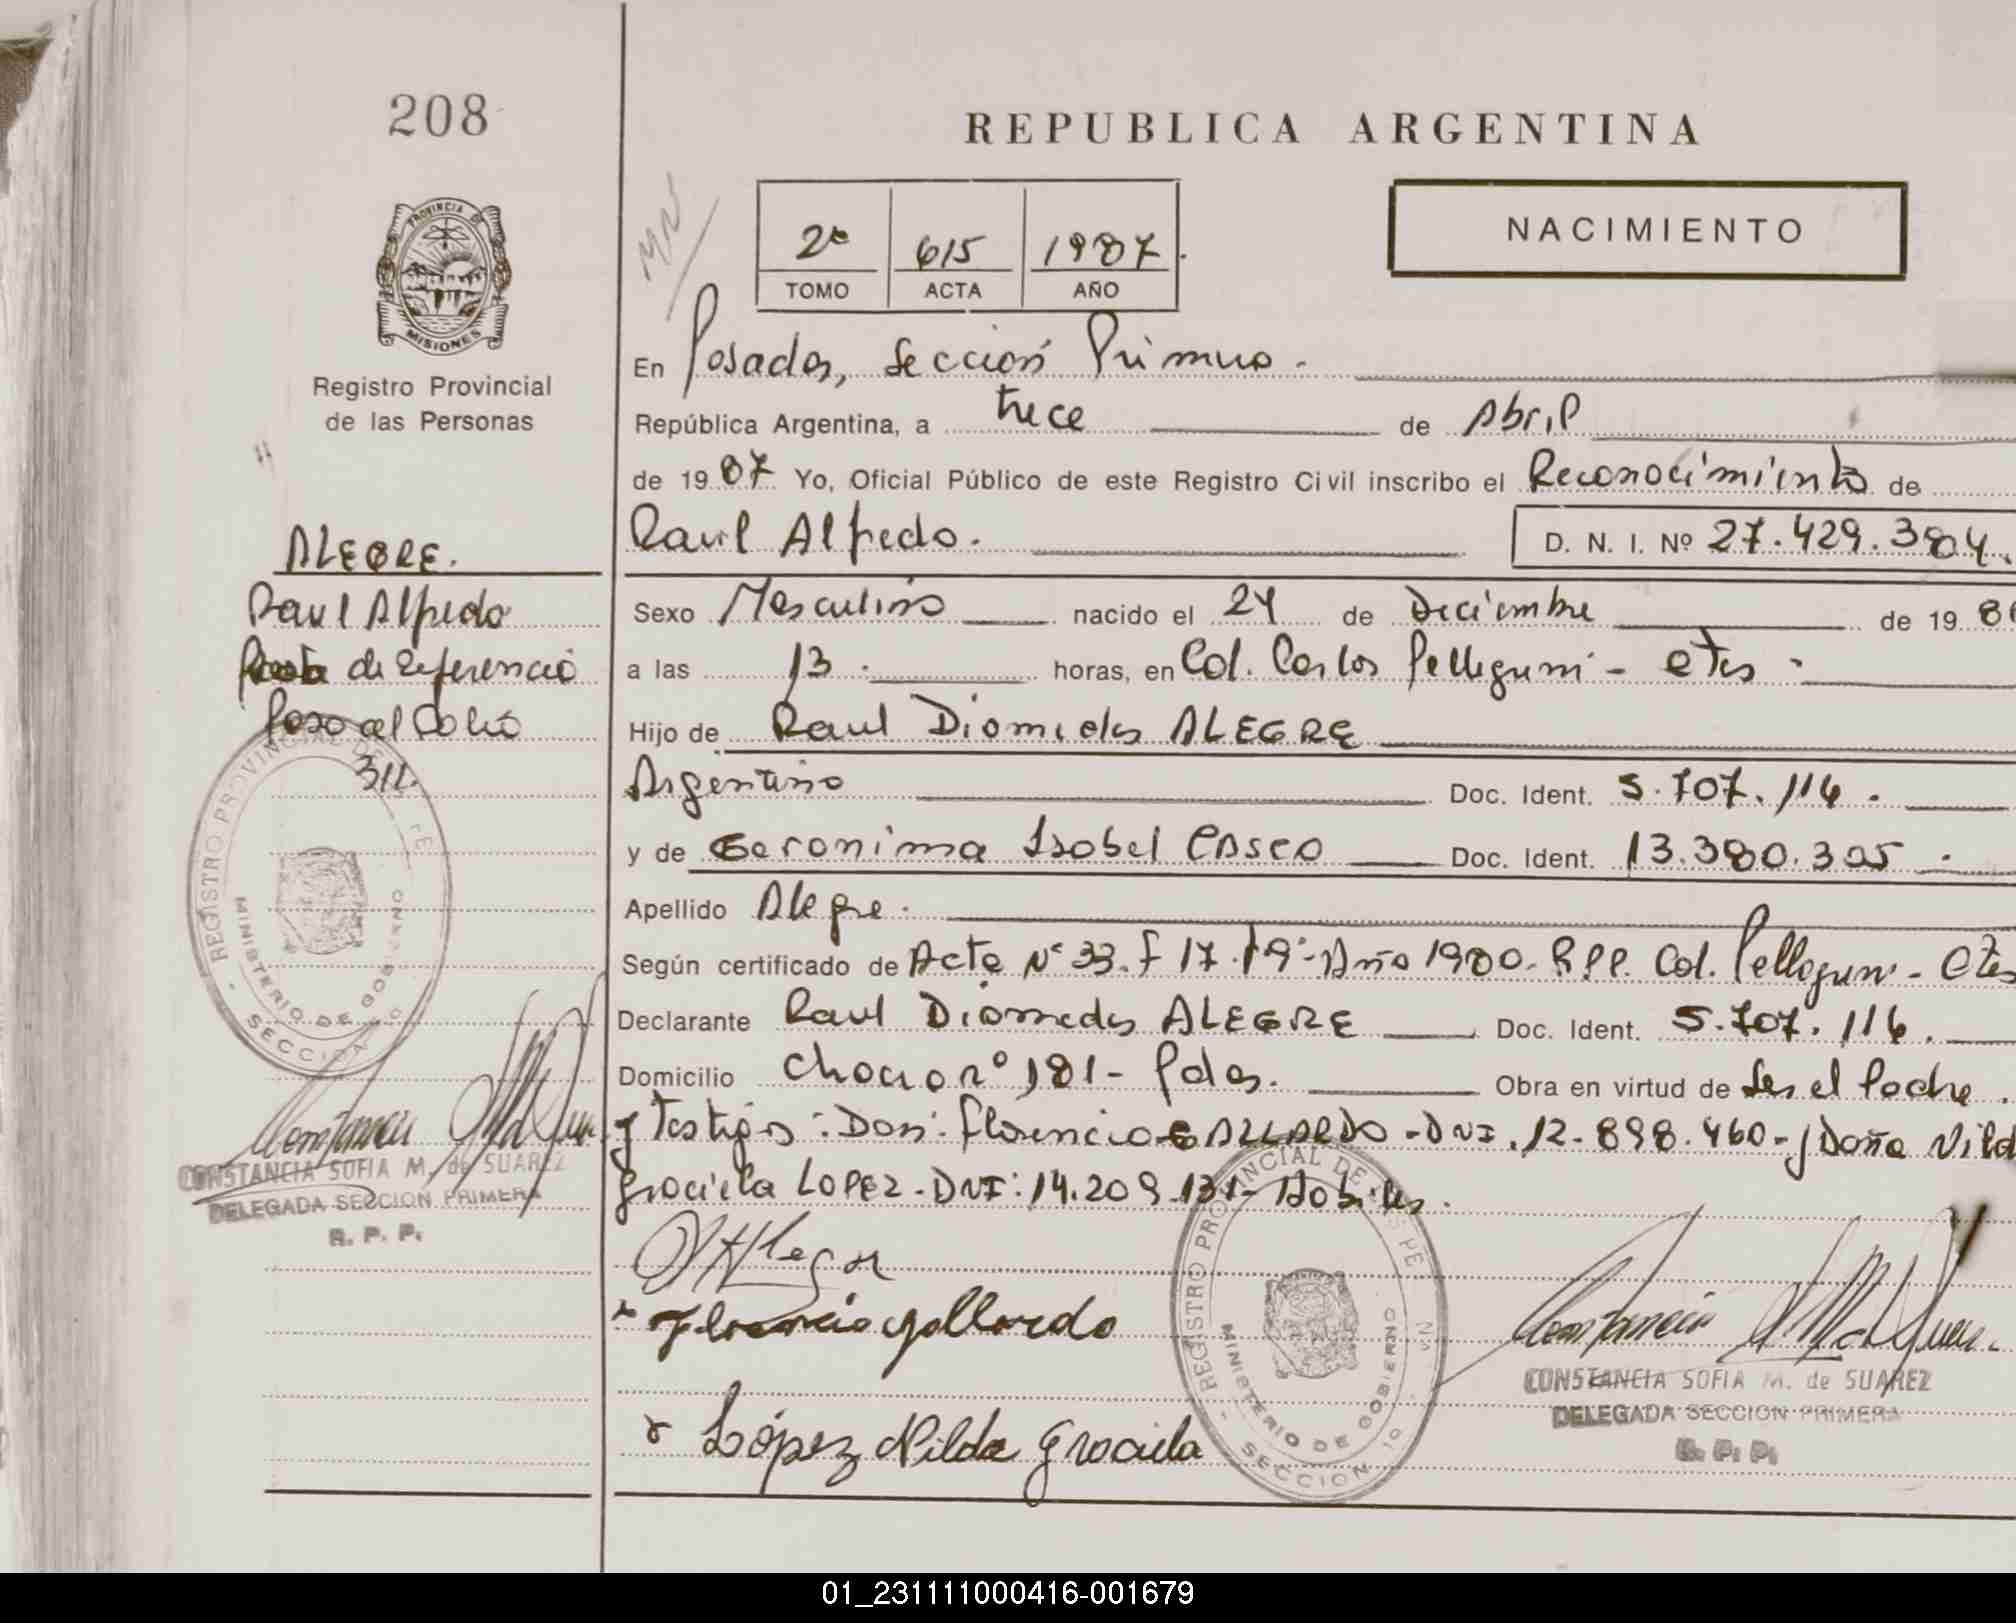 208
REPUBLICA ARGENTINA
NACIMIENTO
2º 615 1987
TOMO ACTA AÑO
PROVINCIA DE
MISIONES
Registro Provincial
de las Personas
En Posadas, Sección Primera.
República Argentina, a trece de Abril
de 1987 Yo, Oficial Público de este Registro Civil inscribo el Reconocimiento de
Raul Alfredo. D. N. I. Nº 27.429.384.
Sexo Masculino nacido el 24 de Diciembre de 19
a las 13. horas, en Col. Carlos Pellegrini - Ctes.
Hijo de Raul Diomedes ALEGRE
Argentino Doc. Ident. 5.707.116.
y de Geronima Isabel CASCO Doc. Ident. 13.380.305.
Apellido Alegre.
Según certificado de Acta Nº 33. f 17. Año 1980. R.P.P. Col. Pellegrini - Ctes
Declarante Raul Diomedes ALEGRE Doc. Ident. 5.707.116.
Domicilio Chaco nº 181 - Pdas. Obra en virtud de Ser el Padre.
y Testigos: Don: Florencio GALLARDO - DNI. 12.898.460 - y Doña Nild
Graciela LOPEZ - DNI: 14.209.131 - Hábiles.
Florencio Gallardo
López Nilda Graciela
ALEGRE.
Raul Alfredo
de referencia
Paso al Folio
311.
REGISTRO PROVINCIAL DE
MINISTERIO DE GOBIERNO
SECCION 1º
CONSTANCIA SOFIA M. de SUAREZ
DELEGADA SECCION PRIMERA
R. P. P.
REGISTRO PROVINCIAL DE
MINISTERIO DE GOBIERNO
SECCION 1º
CONSTANCIA SOFIA M. de SUAREZ
DELEGADA SECCION PRIMERA
R. P. P.
01_231111000416-001679